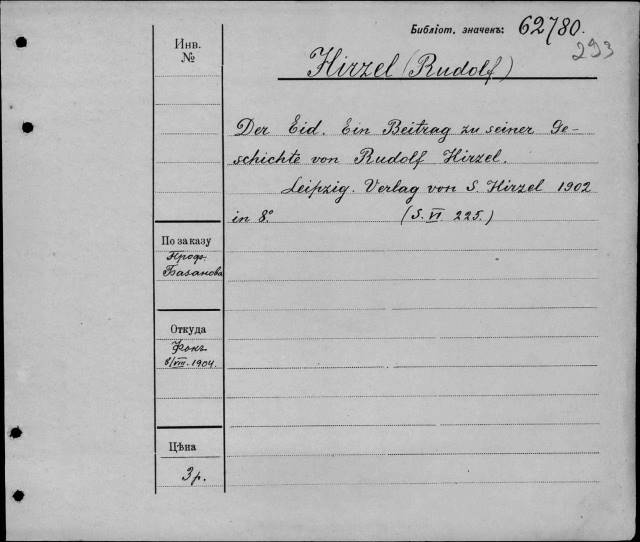 Библіот. значекъ: 62780.
293
Инв.
№
Hirzel (Rudolf)
Der Eid. Ein Beitrag zu seiner Ge-
schichte von Rudolf Hirzel.
Leipzig. Verlag von S. Hirzel 1902
in 8º (S. VI 225.)
По заказу
Проф.
Базанова
Откуда
Фокъ
6/VIII. 1904.
Цѣна
3 р.